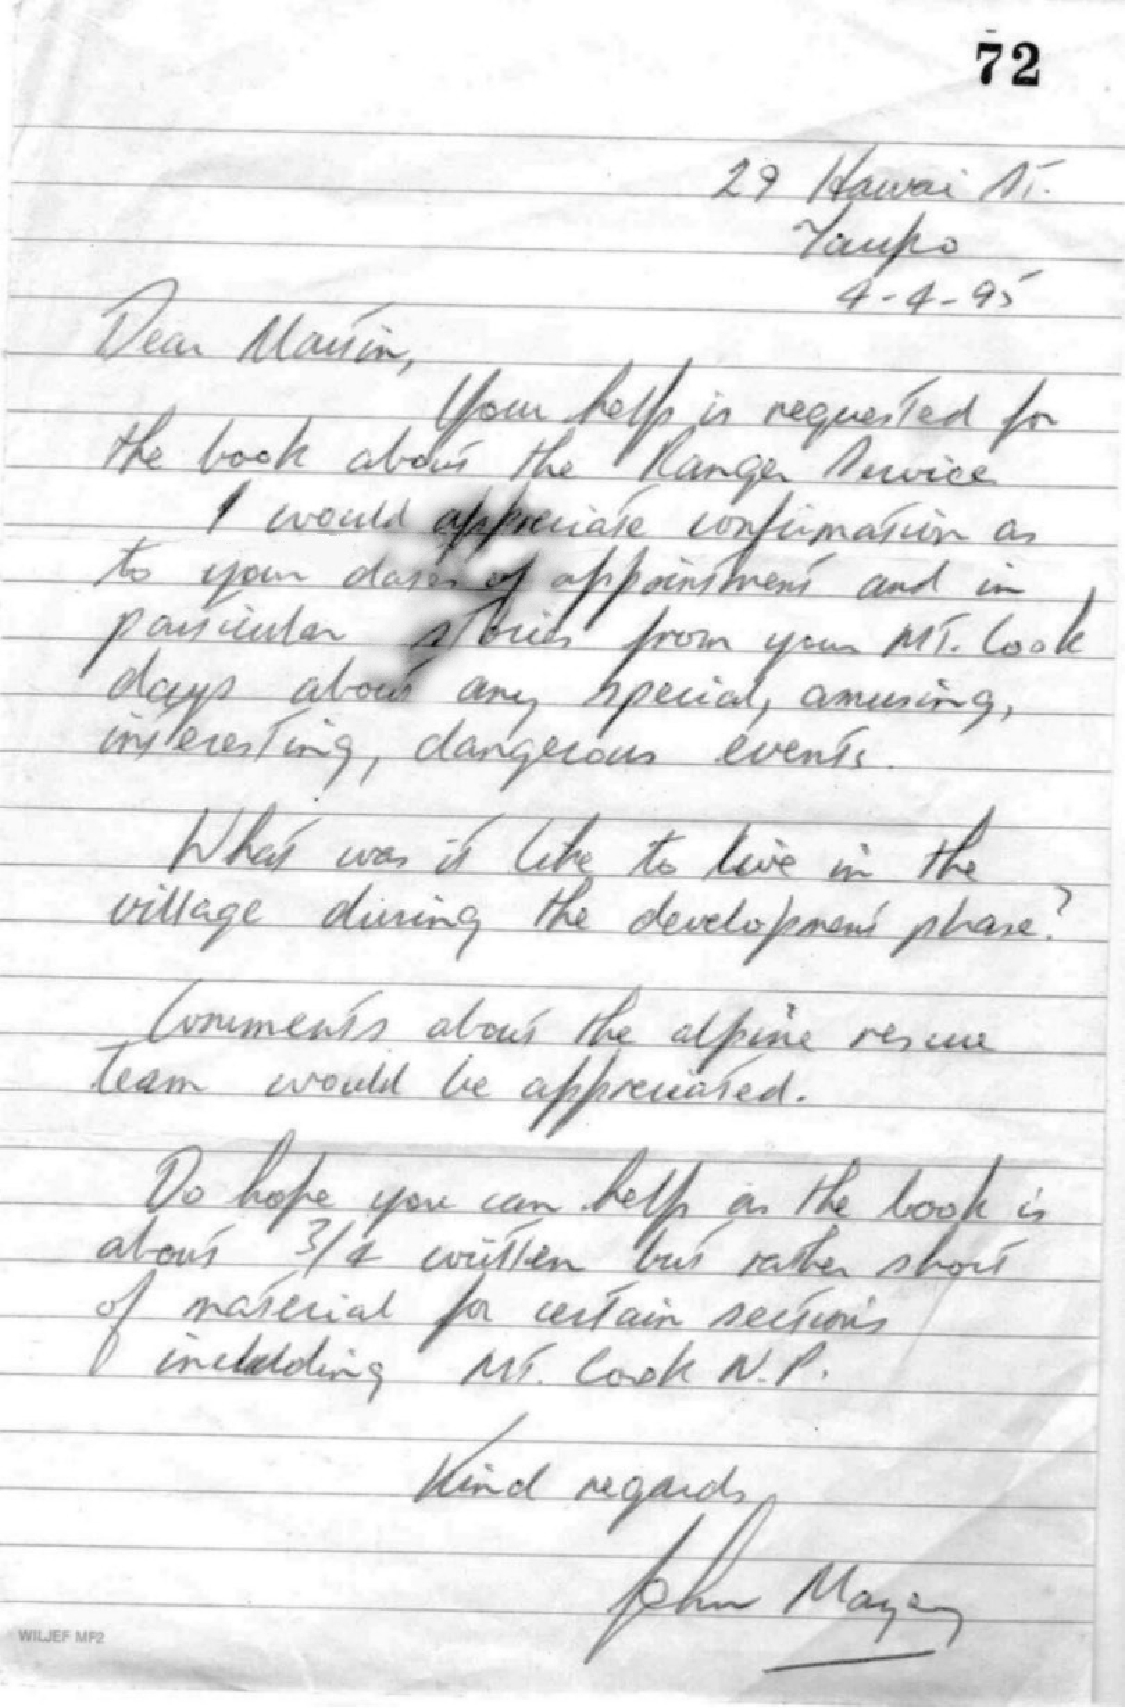 72
29 Hawai St.
Taupo
4-4-95
Dear Martin,
Your help is requested for
the book about the Ranger Service
I would appreciate confirmation as
to your dates of appointment and in
particular stories from your Mt. Cook
days about any special, amusing,
interesting, dangerous events.
What was it like to live in the
village during the development phase?
Comments about the alpine rescue
team would be appreciated.
Do hope you can help as the book is
about 3/4 written but rather short
of material for certain sections
including Mt. Cook N.P.
Kind regards
John
WILJEF MP2